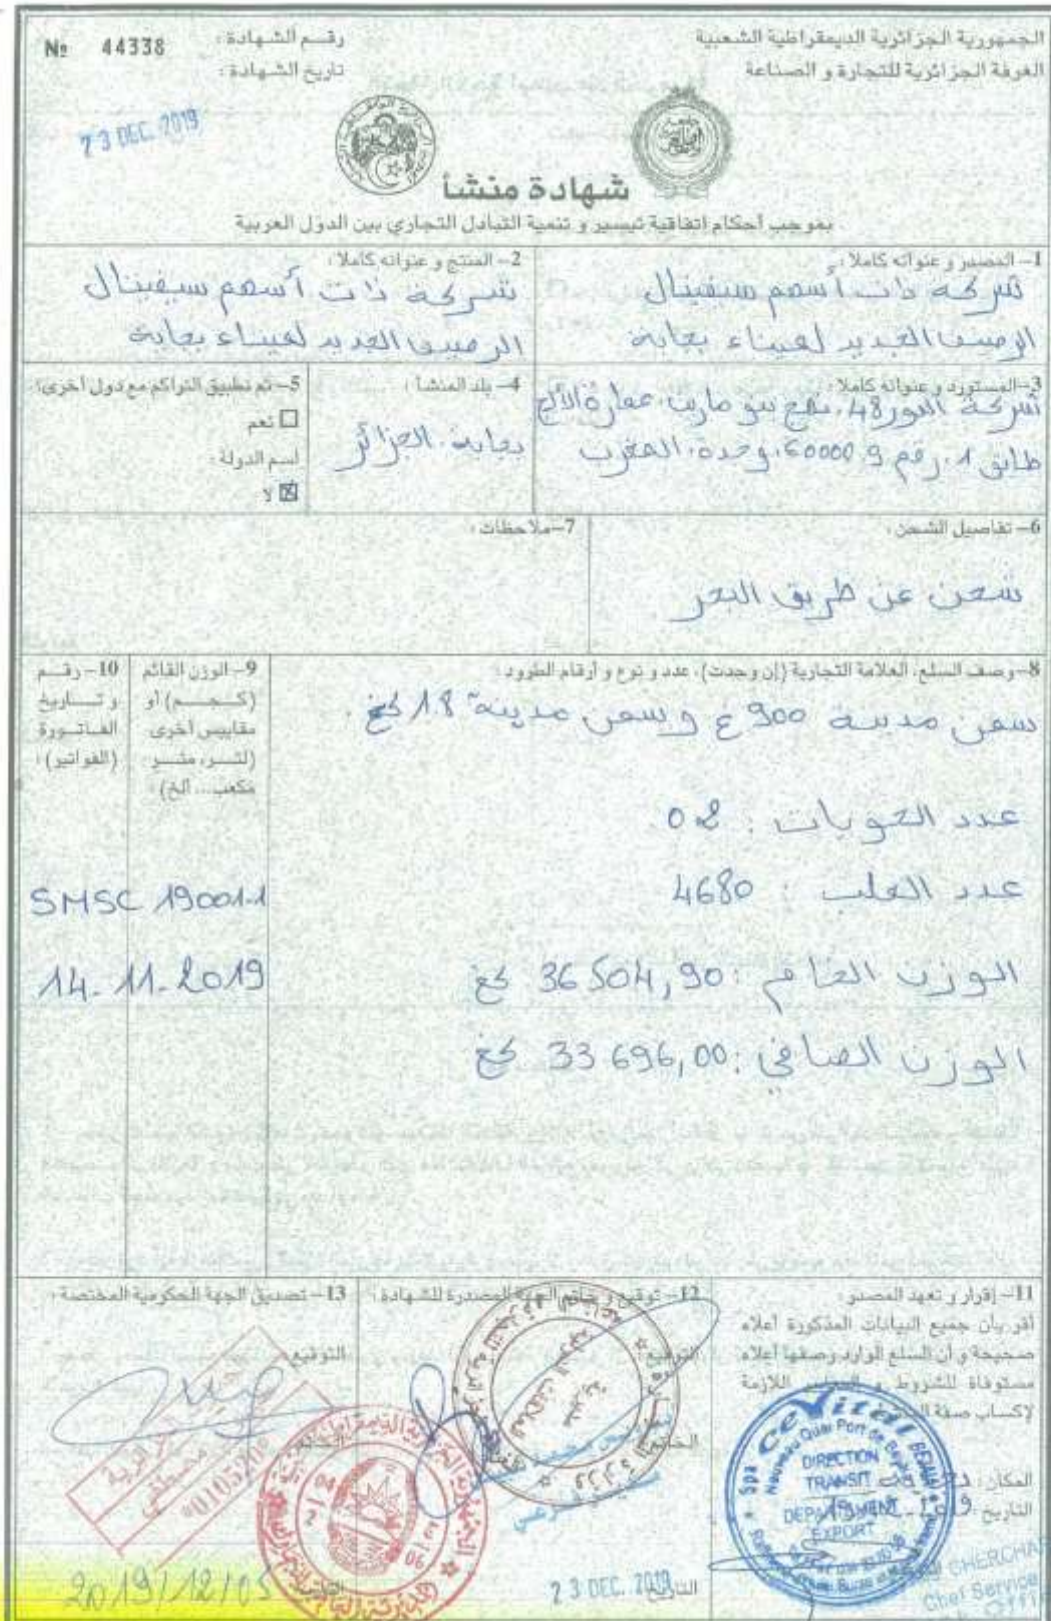 الجمهورية الجزائرية الديمقراطية الشعبية
الغرفة الجزائرية للتجارة و الصناعة
رقم الشهادة :
№ 44338
تاريخ الشهادة :
23 DEC. 2019
شهادة منشأ
بموجب أحكام اتفاقية تيسير و تنمية التبادل التجاري بين الدول العربية
1– المصدر و عنوانه كاملا :
شركة ذات أسهم سيفيتال
الرصيف الجديد لميناء بجاية
2– المنتج و عنوانه كاملا :
شركة ذات أسهم سيفيتال
الرصيف الجديد لميناء بجاية
3– المستورد و عنوانه كاملا :
شركة النور 48، نهج
طابق 1، رقم 9، 60000، وجدة، المغرب
4– بلد المنشأ :
بجاية، الجزائر
5– تم تطبيق التراكم مع دول أخرى؟
☐ نعم
اسم الدولة :
☒ لا
6– تفاصيل الشحن :
شحن عن طريق البحر
7– ملاحظات :
8– وصف السلع، العلامة التجارية (إن وجدت)، عدد و نوع و أرقام الطرود :
سمن مدينة 900 غ و سمن مدينة 1.8 كغ.
عدد الحويات : 02
عدد العلب : 4680
الوزن الخام : 36 504,90 كغ
الوزن الصافي : 33 696,00 كغ
9– الوزن القائم
(كـجـم) أو
مقاييس أخرى
(لتر، متر
مكعب... الخ) :
10– رقم
و تاريخ
الفاتورة
(الفواتير) :
SMSC 190011
14-11-2019
11– إقرار و تعهد المصدر :
أقر بأن جميع البيانات المذكورة أعلاه
صحيحة و أن السلع الوارد وصفها أعلاه
مستوفاة للشروط و اللازمة
لإكساب صفة
المكان :
التاريخ :
Spa cevital BEJAIA
Nouveau Quai Port de Bejaia
DIRECTION
TRANSIT
DEPARTMENT
EXPORT
Chef Service
12– توقيع و خاتم الجهة المصدرة للشهادة :
التوقيع
23 DEC. 2019
13– تصديق الجهة الحكومية المختصة :
التوقيع
2019/12/05